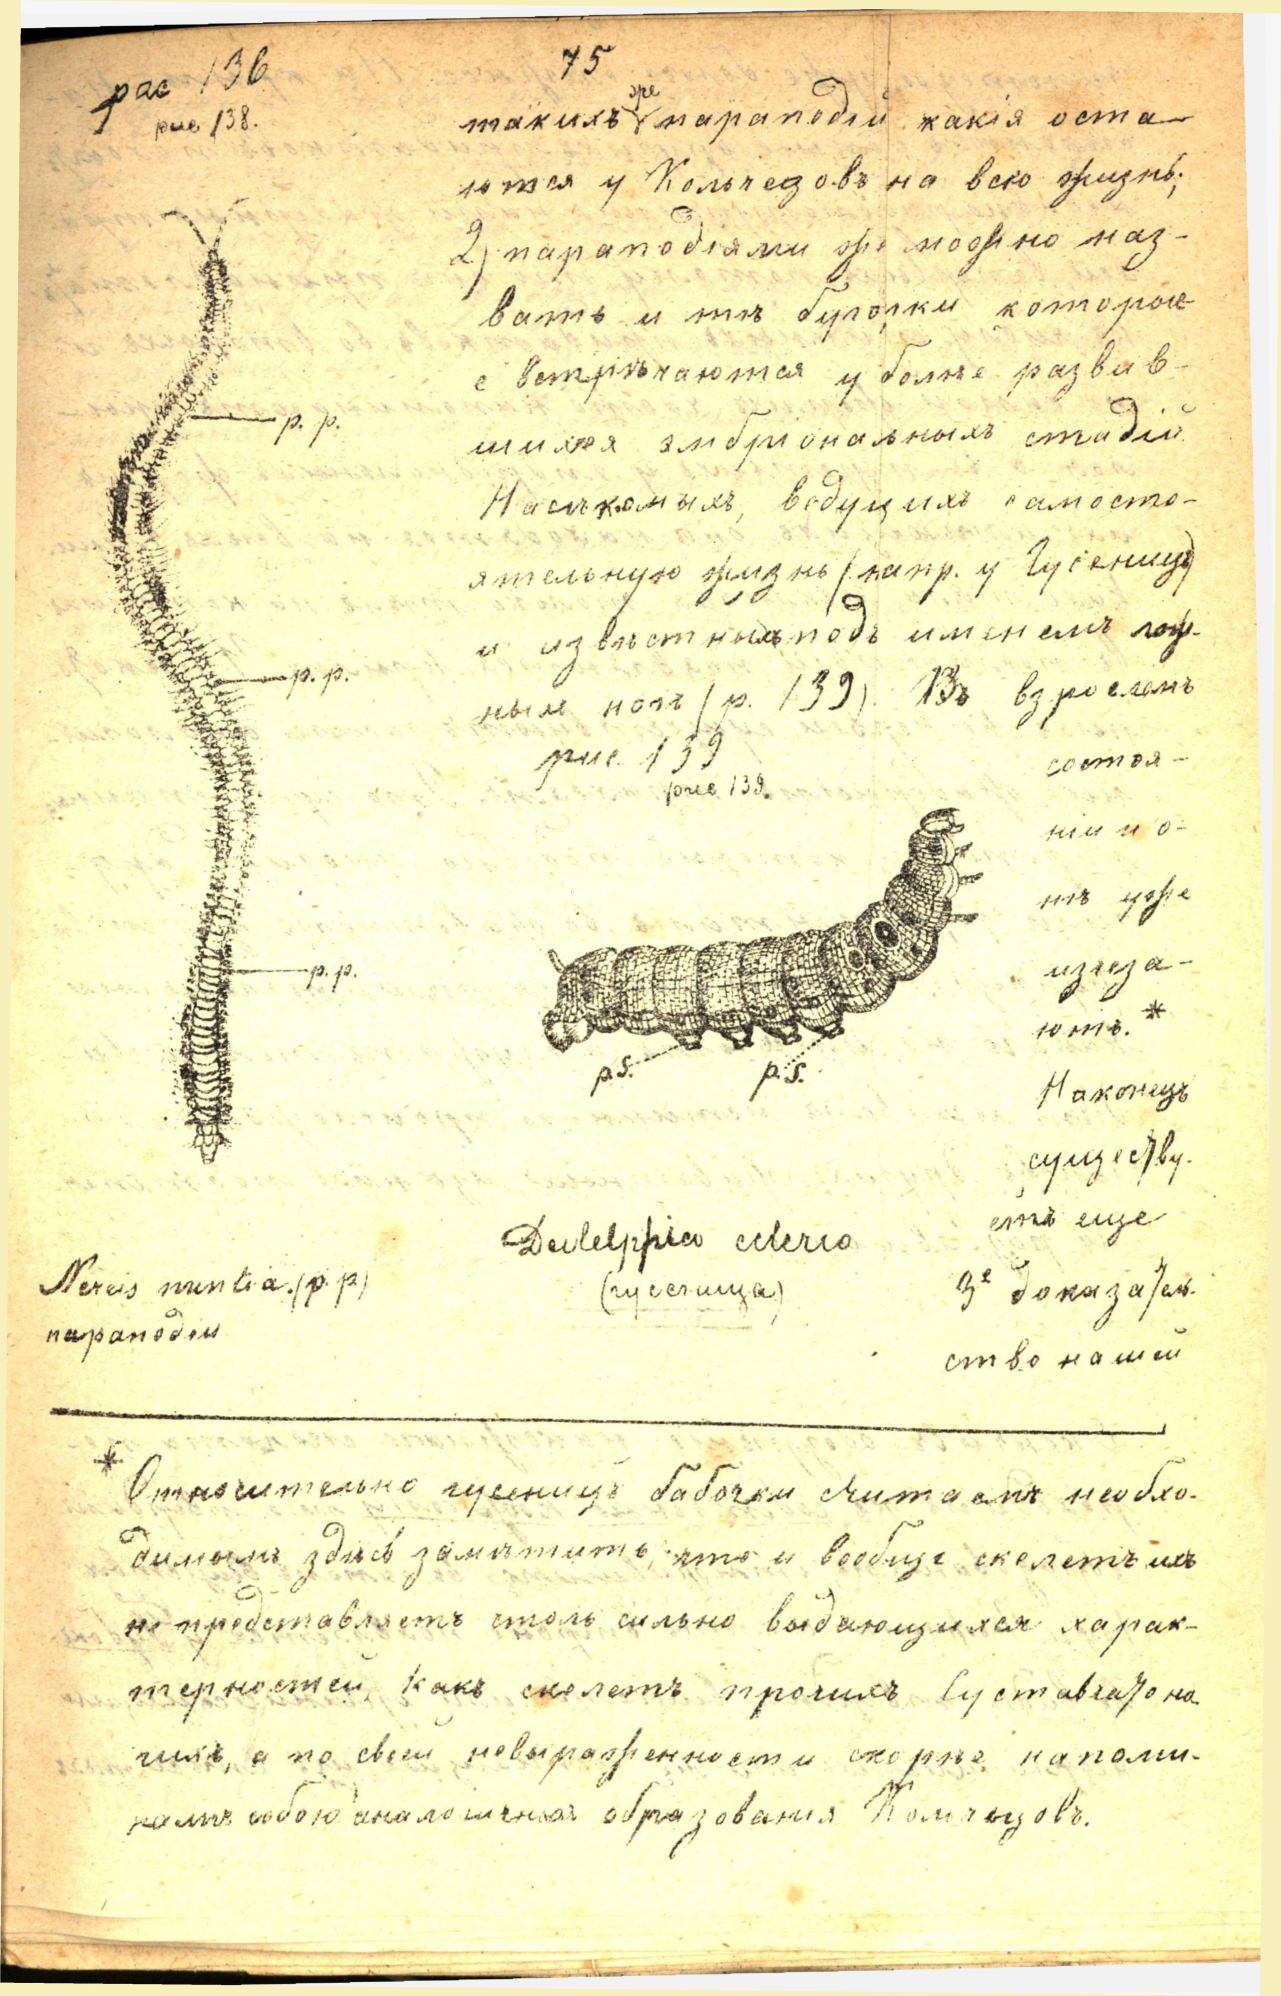 75
рис 138
рис 138.
же
такихъ параподiй какiя оста-
ются у Кольчецовъ на всю жизнь;
2) параподiями же можно наз-
вать и тѣ бугорки которые
встрѣчаются у болѣе развив-
шихся эмбриональныхъ стадiй
Насѣкомыхъ, ведущихъ самосто-
ятельную жизнь (напр. у Гусеницъ)
и извѣстныхъ подъ именемъ лож-
ныхъ ногъ (р. 139). Въ взросломъ
рис. 139
рис 139.
состоя-
нiи о-
нѣ уже
изчеза-
ютъ. *
Наконецъ
существу-
етъ еще
3е доказатель-
ство нашей
р. р.
р. р.
р. р.
p.s.
p.s.
Nereis nuntia. (р. р)
параподiи
Deilephila celerio
(гусеница)
* Относительно гусеницъ бабочки считаемъ необхо-
димымъ здѣсь замѣтить, что и вообще скелетъ ихъ
не представляетъ столь сильно выдающихся харак-
терностей, какъ скелетъ прочихъ Суставчатоно
гихъ, а по своей невыраженности скорѣе напоми-
наетъ собою аналогичныя образованiя Кольчецовъ.